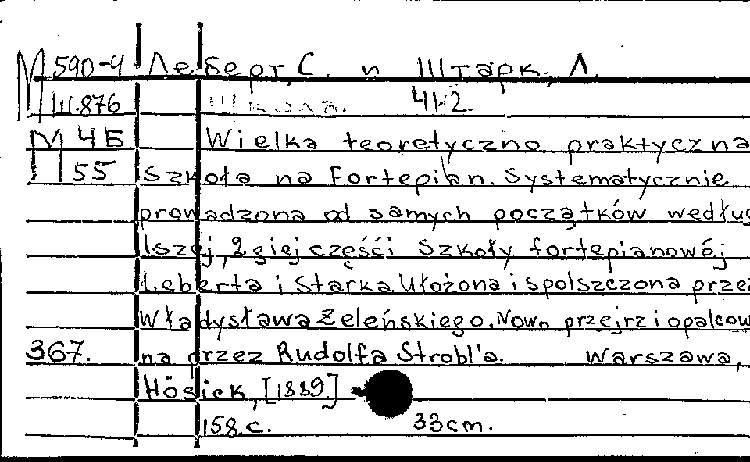 М 590-4 Леберт, С. и Штарк, Л.
Ш.876 Школа. Ч1-2.
М 4Б Wielka teoretyczno praktyczna
П 55 Szkoła na Fortepian. Systematycznie
prowadzona od samych początków według
1szej, 2giej części szkoły fortepianowéj
Leberta i Starka. Ułożona i spolszczona przez
Władysława Zeleńskiego. Nowo przejrz i opalcow
367. na przez Rudolfa Strobl'a. Warszawa,
Hösick, [1889.]
158 с. 33cm.